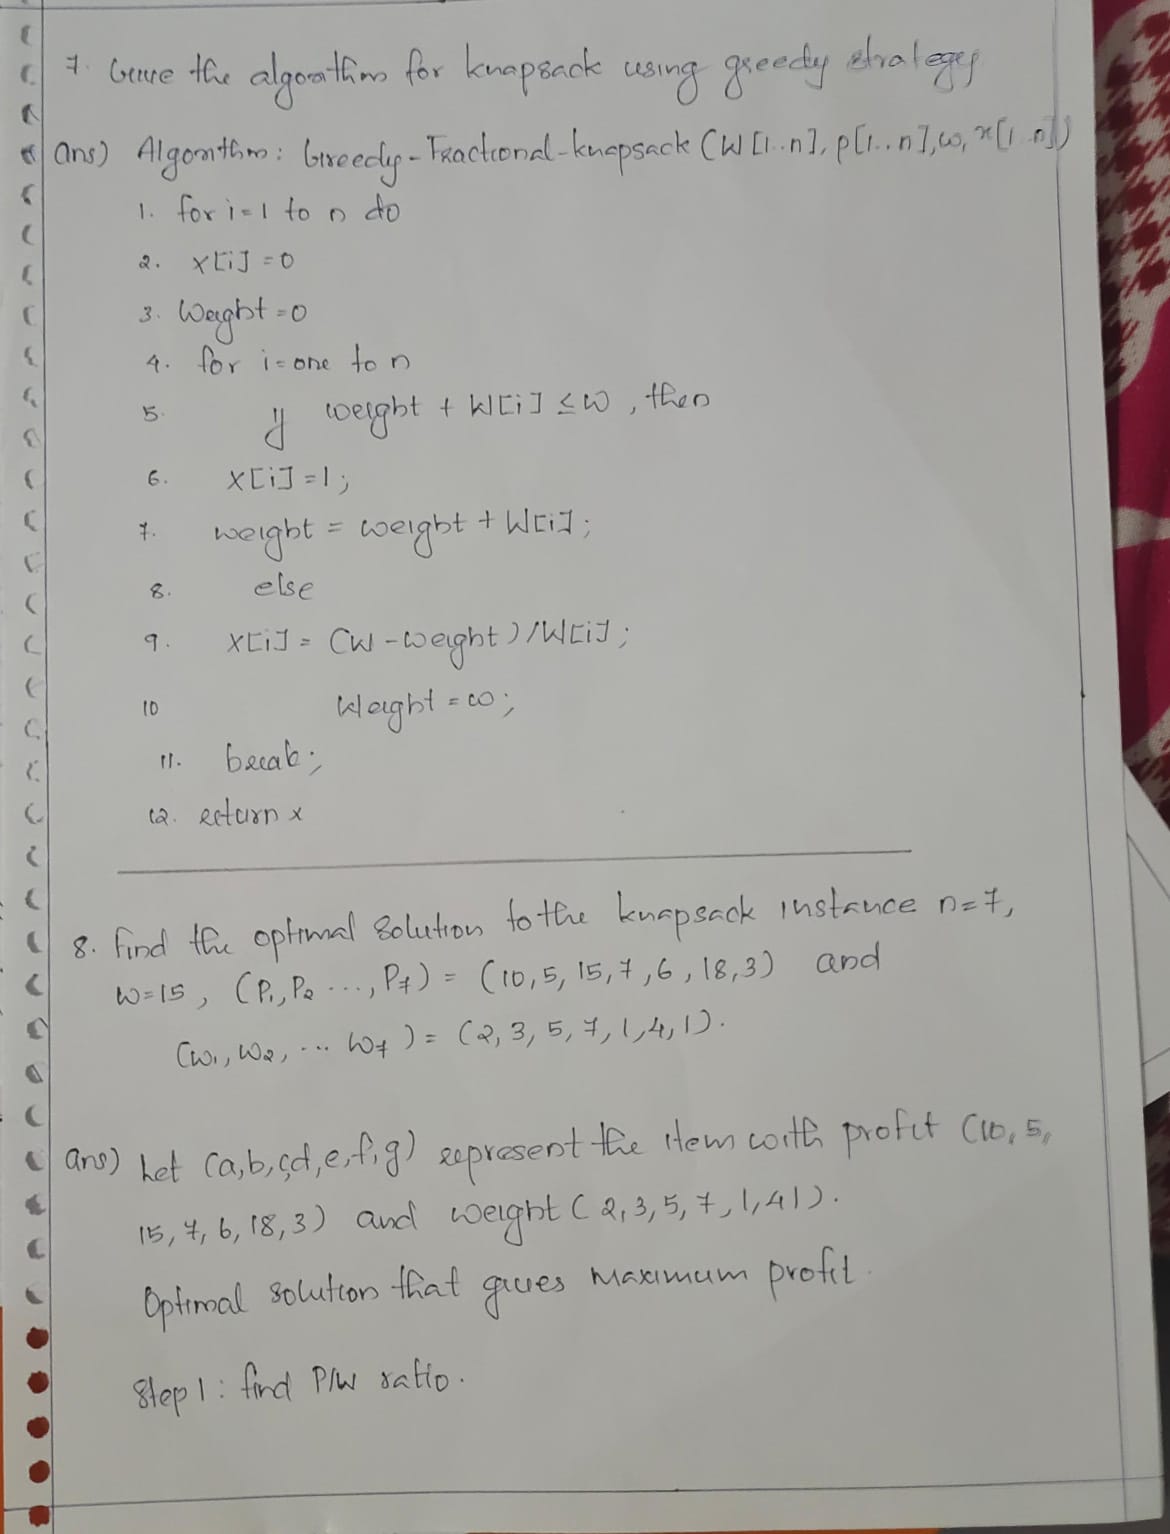 7. Give the algorithm for knapsack using greedy strategy
ans) Algorithm: Greedy-Fractional-knapsack (W[1..n], p[1..n], w, x[1..n])
1. for i=1 to n do
2. x[i] = 0
3. Weight = 0
4. for i = one to n
5. if weight + W[i] ≤ w, then
6. x[i] = 1;
7. weight = weight + W[i];
8. else
9. x[i] = (w - weight) / W[i];
10 Weight = w;
11. break;
12. return x
8. find the optimal solution to the knapsack instance n=7,
w=15, (P1, P2 ..., P7) = (10, 5, 15, 7, 6, 18, 3) and
(w1, w2, ... w7) = (2, 3, 5, 7, 1, 4, 1).
ans) Let (a, b, c, d, e, f, g) represent the item with profit (10, 5,
15, 7, 6, 18, 3) and weight (2, 3, 5, 7, 1, 4 1).
Optimal solution that gives maximum profit.
Step 1: find P/W ratio.